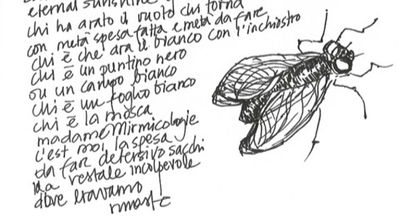 eternal sunshine
chi ha arato il vuoto cui torna
con metà spesa fatta e metà da fare
chi è che ara il bianco con l'inchiostro
chi è un puntino nero
ou un campo bianco
chi è un foglio bianco
chi è la mosca
madame Mirmicoleoje
c'est moi, la spesa
da fare detersivo sacchi
da restare incolpevole
dove eravamo
rimaste